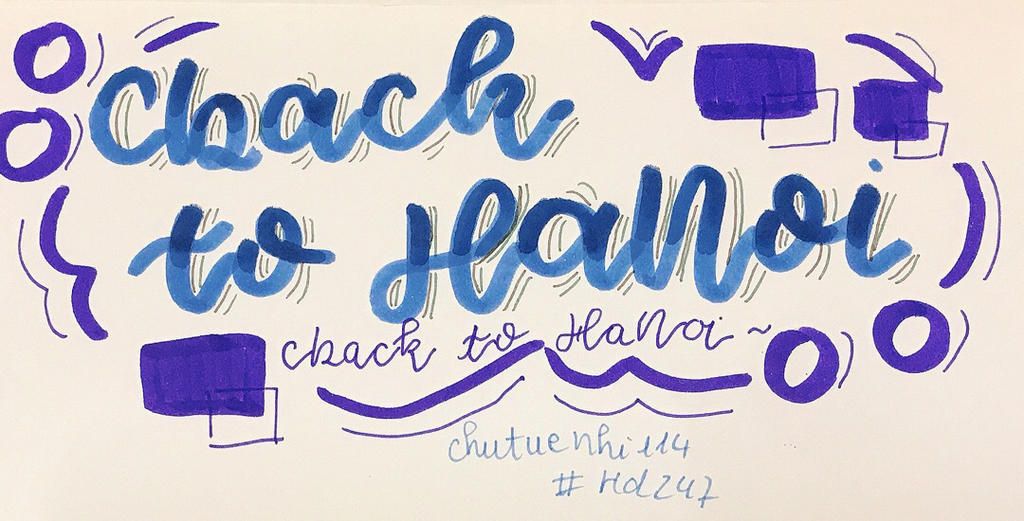 cback
to HaNoi
cback to HaNoi ~
chutuenhi 114
# Hd247